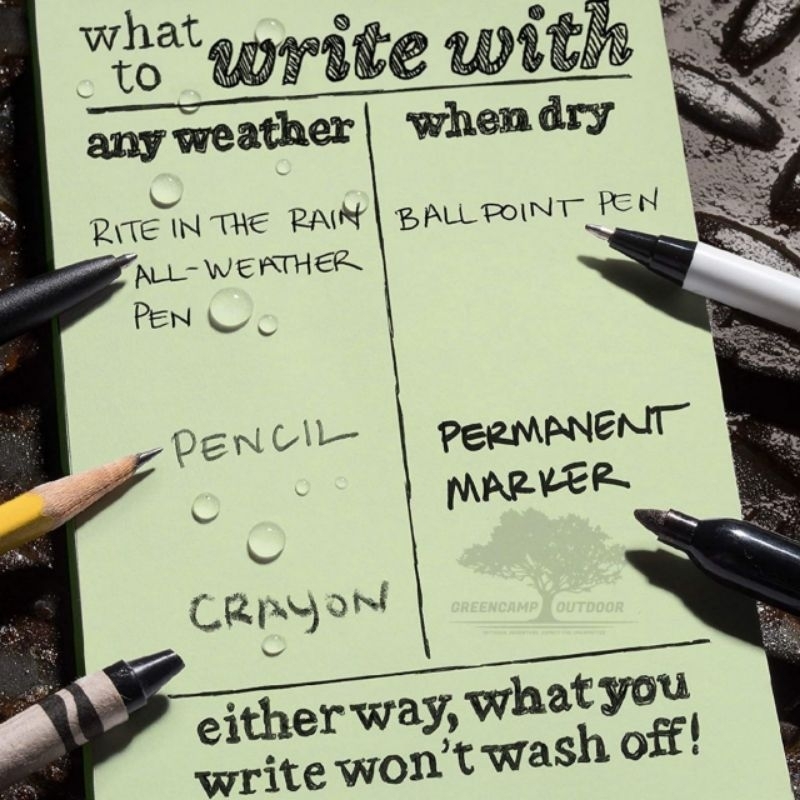 what
to write with
any weather
when dry
RITE IN THE RAIN
ALL-WEATHER
PEN
BALLPOINT PEN
PENCIL
PERMANENT
MARKER
CRAYON
GREENCAMP OUTDOOR
either way, what you
write won't wash off!